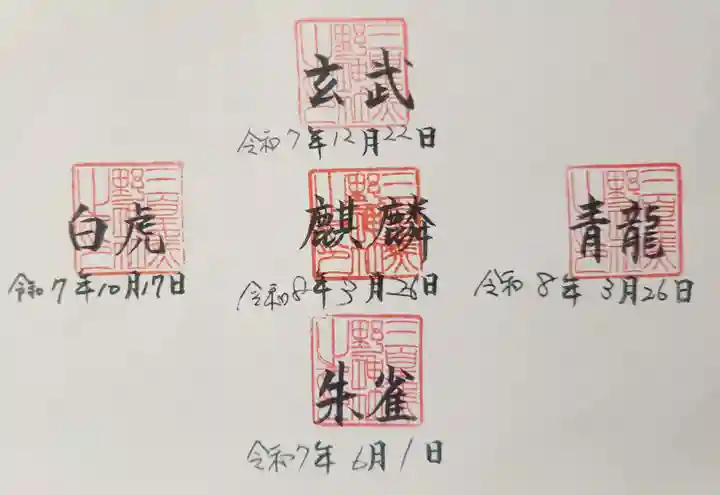 玄武
令和7年12月22日
白虎
令和7年10月17日
麒麟
令和8年3月26日
青龍
令和8年3月26日
朱雀
令和7年6月1日